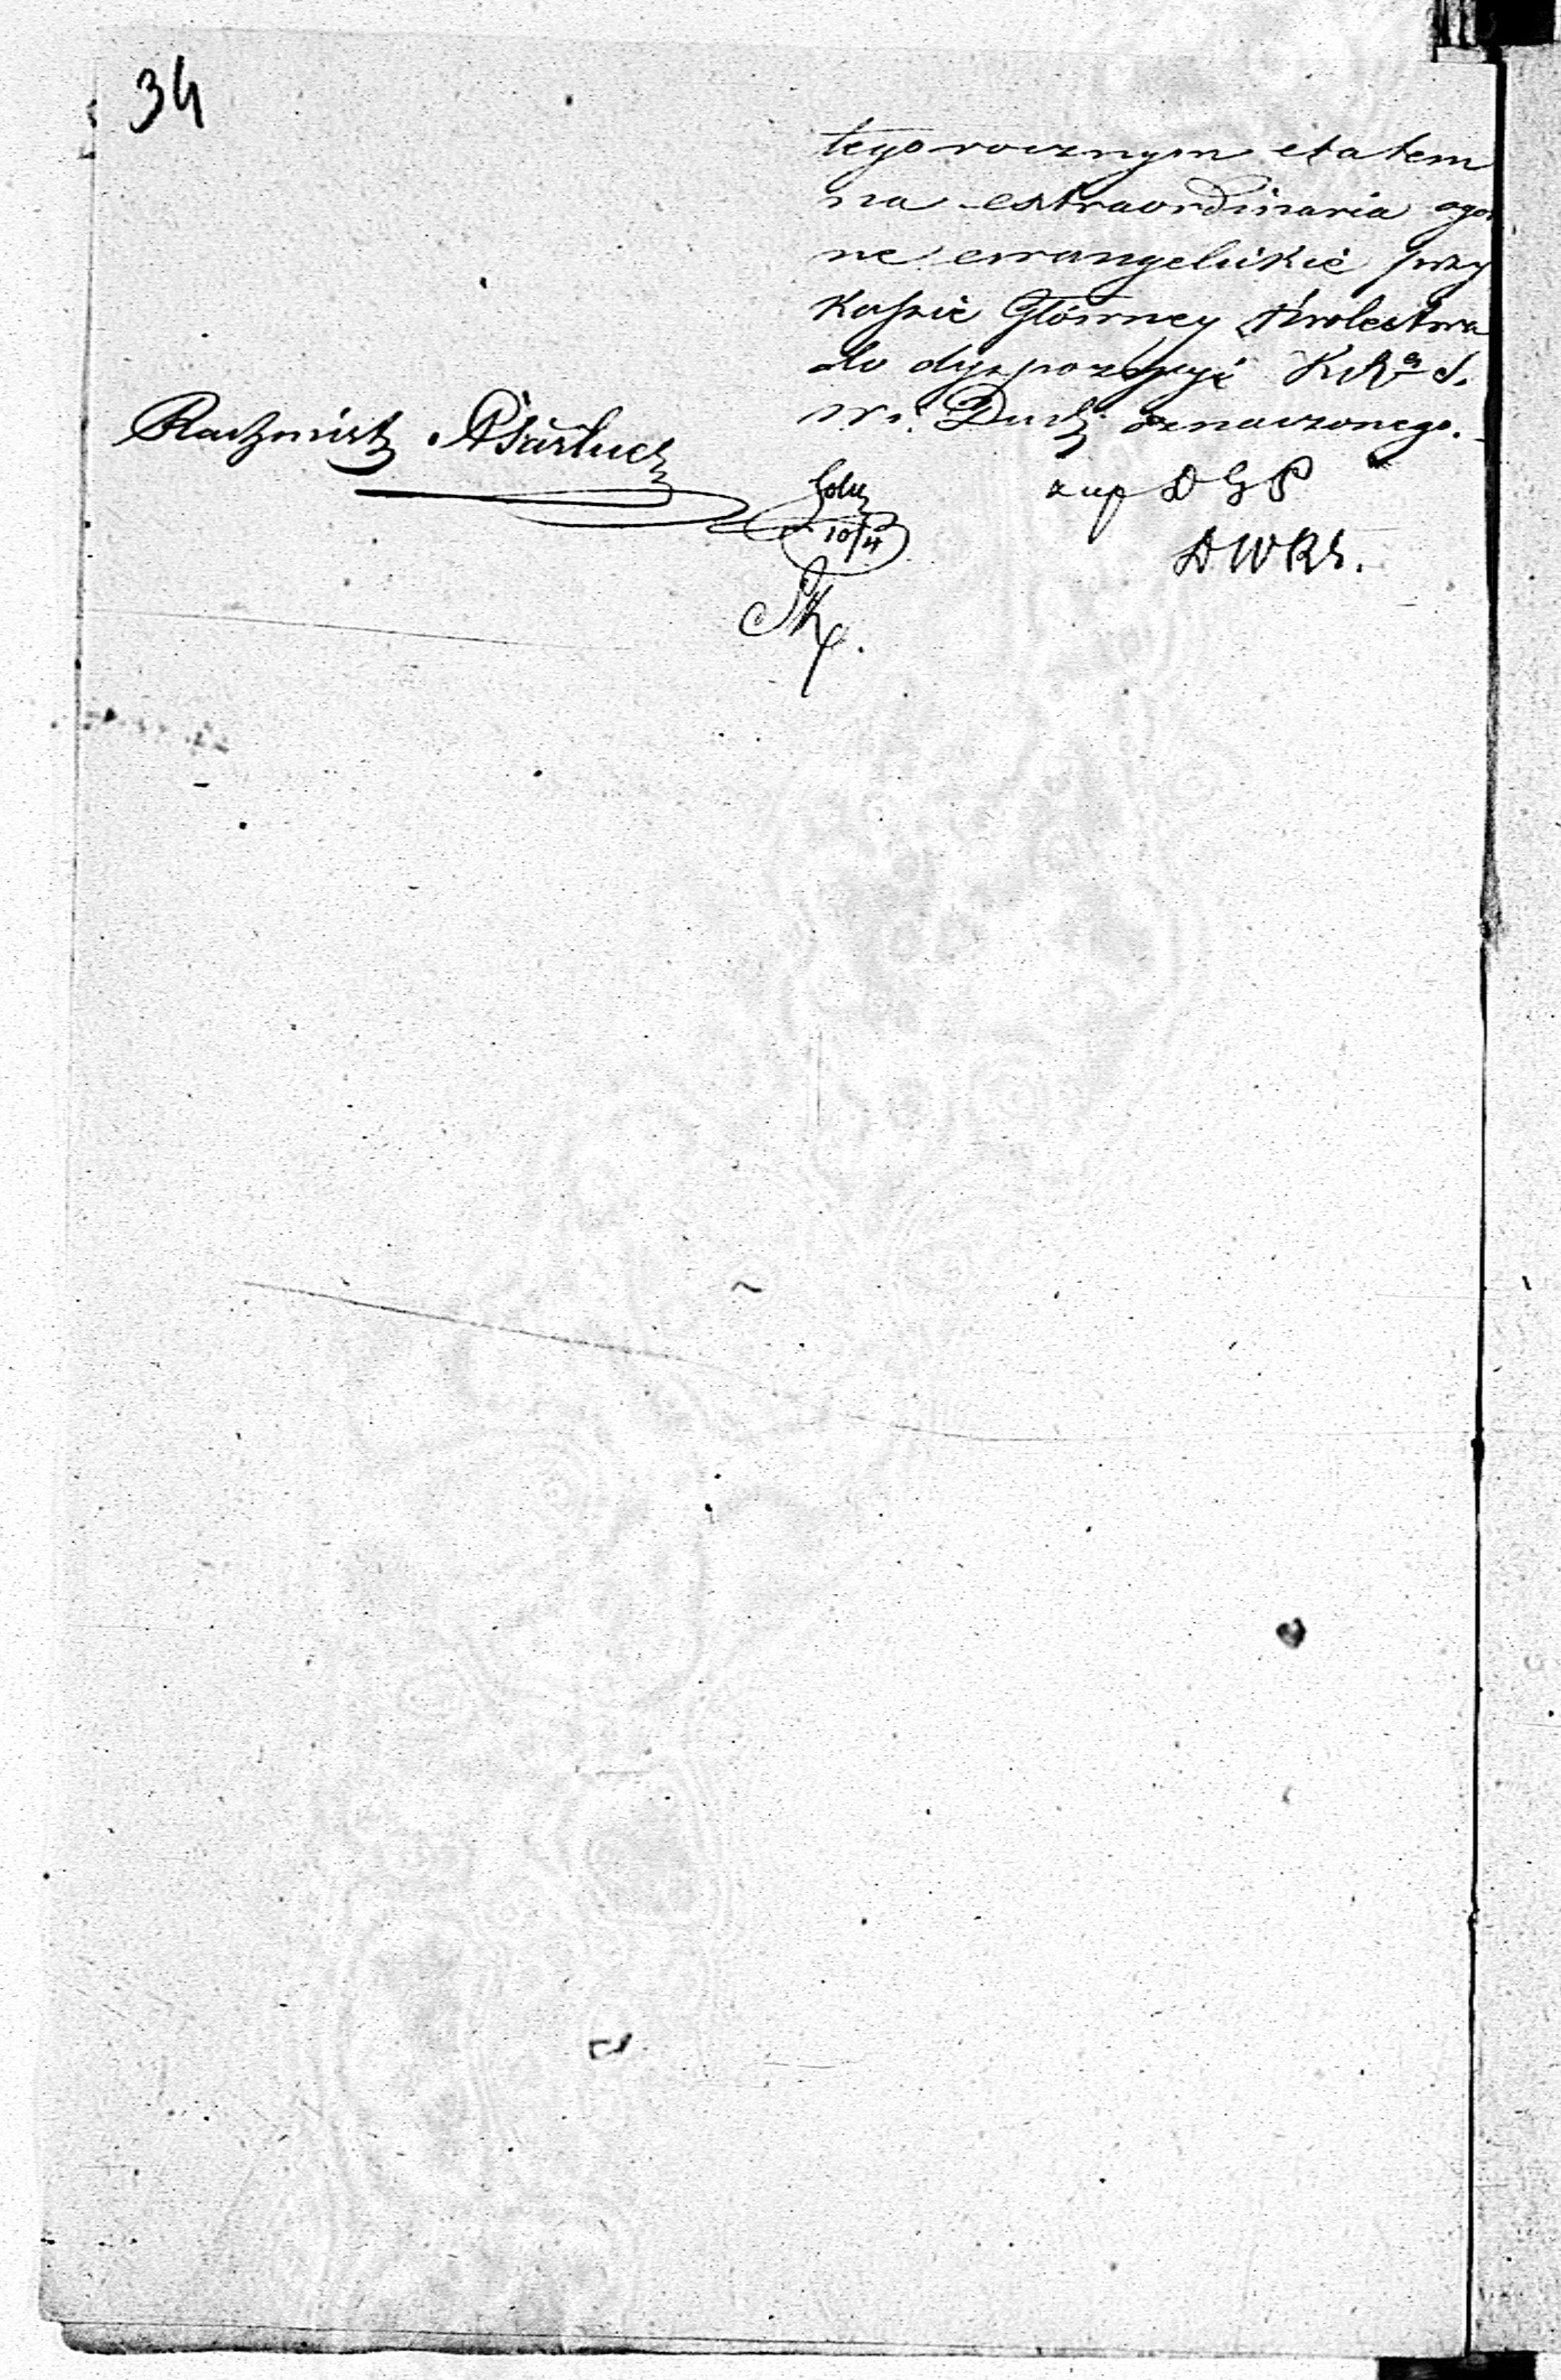 34
tegorocznym etatem
na extraordinaria ogól
ne ewangelickie przy
Kassie Główney Królestwa
do dyspozycyi KR S.
W i Duch: oznaczonego.
Rachmistrz
10/4
zup DGP
DWRS.